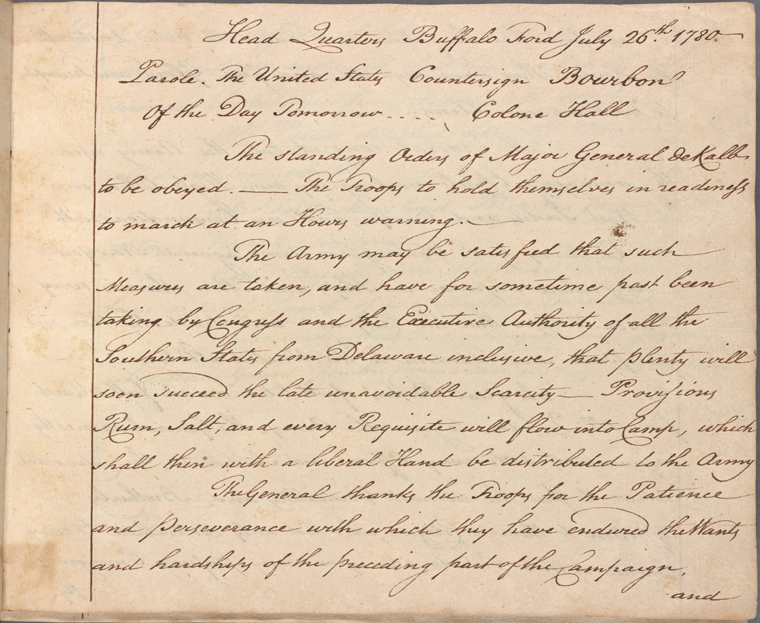 Head Quarters Buffalo Ford July 26th 1780.
Parole. The United States Countersign Bourbon
Of the Day Tomorrow..... Colone Hall
The standing Orders of Major General deKalb
to be obeyed. — The Troops to hold themselves in readiness
to march at an Hours warning. —
The Army may be satisfied that such
Measures are taken, and have for sometime past been
taking by Congress and the Executive Authority of all the
Southern States from Delaware inclusive, that plenty will
soon succeed the late unavoidable Scarcity — Provisions
Rum, Salt, and every Requisite will flow into Camp, which
shall then with a liberal Hand be distributed to the Army
The General thanks the Troops for the Patience
and Perseverance with which they have endured the Wants
and hardships of the preceding part of the Campaign,
and